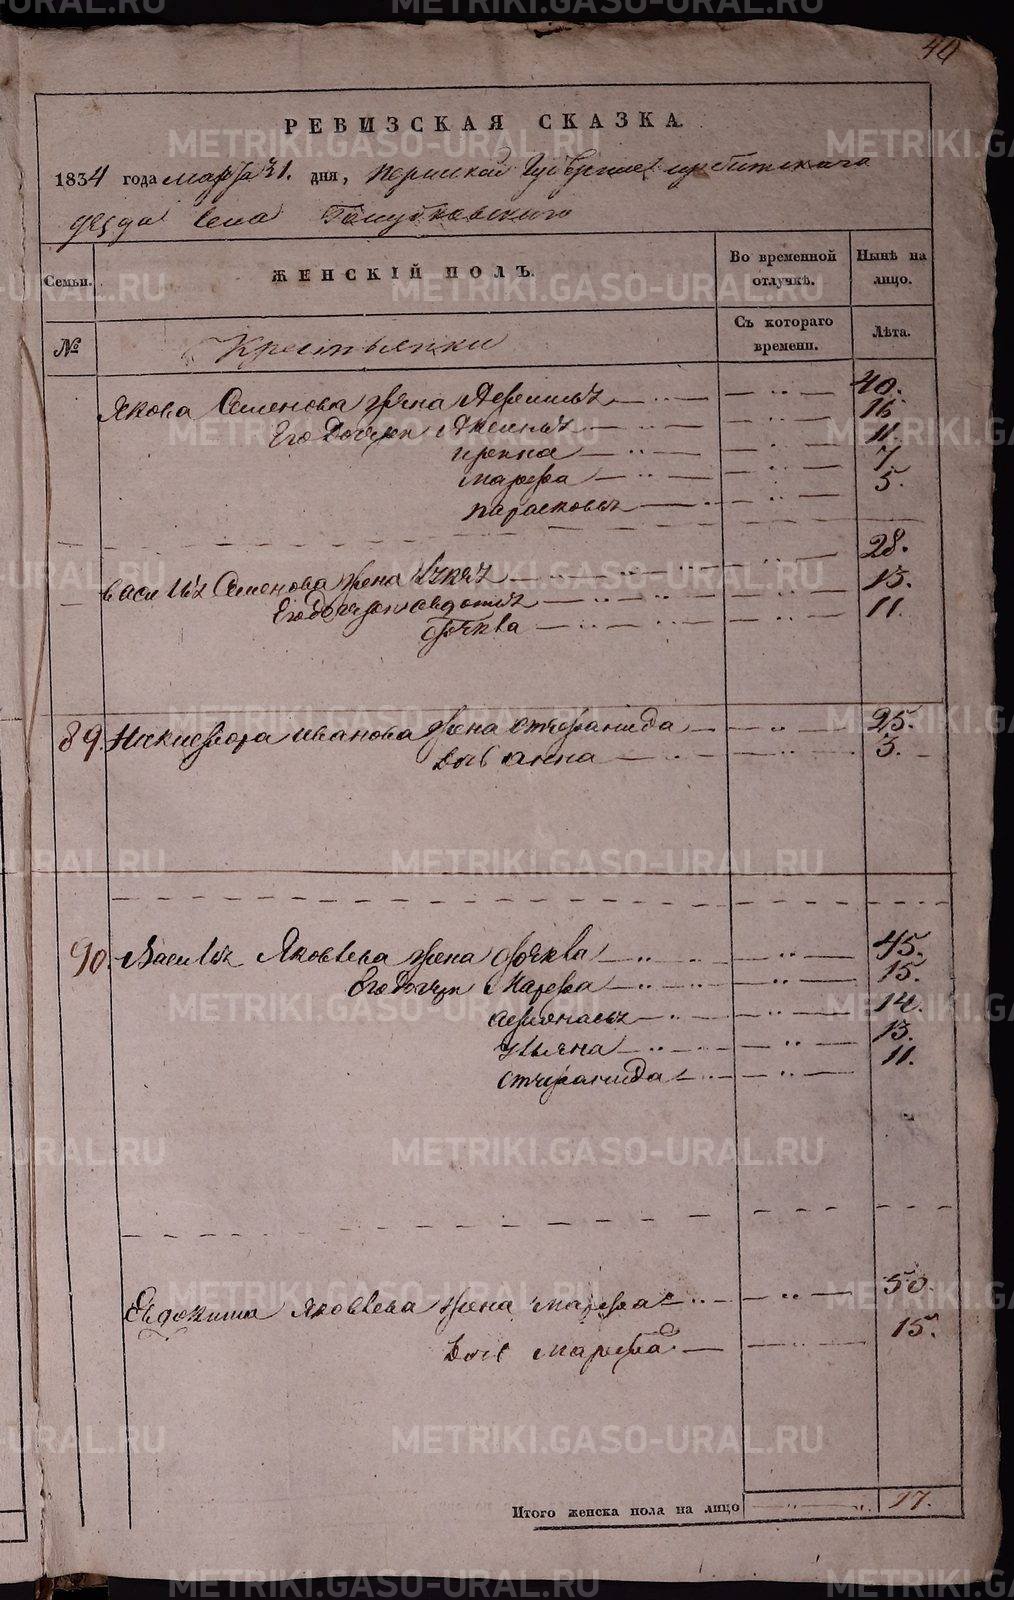 44
РЕВИЗСКАЯ СКАЗКА
1834 года Марта 31. дня, Пермской Губернии Ирбитскаго
уезда Села Голубковскаго
Семьи. ЖЕНСКІЙ ПОЛЪ. Во временной отлучкѣ. Нынѣ на лицо.
№ Крестьянки Съ котораго времени. Лѣта.
Якова Семенова жена 40.
Его дочери Аксинья 16
Ирина 11
Марфа 7
Парасковья 5.
Василья Семенова жена 28.
Его дочери Авдотья 13.
Фёкла 11.
89. Никифора Иванова жена Степанида 25.
дочь Анна 3.
90. Василья Яковлева жена Фёкла 45.
Его дочери Марфа 15.
Афонасья 14.
Ульяна 13.
Степанида 11.
Евдокима Яковлева жена Марфа 50.
дочь Марфа 15.
Итого женска пола на лицо 17.
METRIKI.GASO-URAL.RU